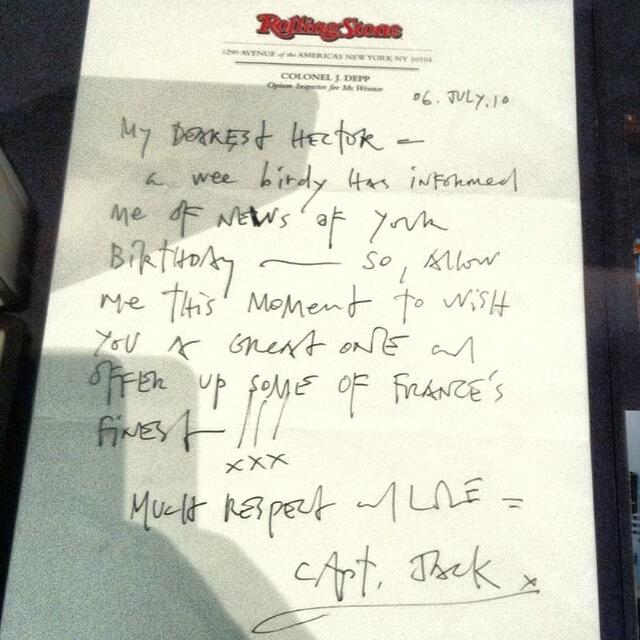 Rolling Stone
1290 AVENUE of the AMERICAS NEW YORK NY 10104
COLONEL J. DEPP
Opium Inspector for Mr. Wenner
06. JULY. 10
My DEAREST HECTOR –
a wee birdy HAS iNFORMED
me of NEWS of your
BIRTHDAY — SO, ALLOW
me THIS MOMENT to WISH
YOU A GREAT ONE and
OFFER UP SOME OF FRANCE'S
FINEST — !!!
xxx
MUCH RESPECT and LOVE =
CAPT. JACK x